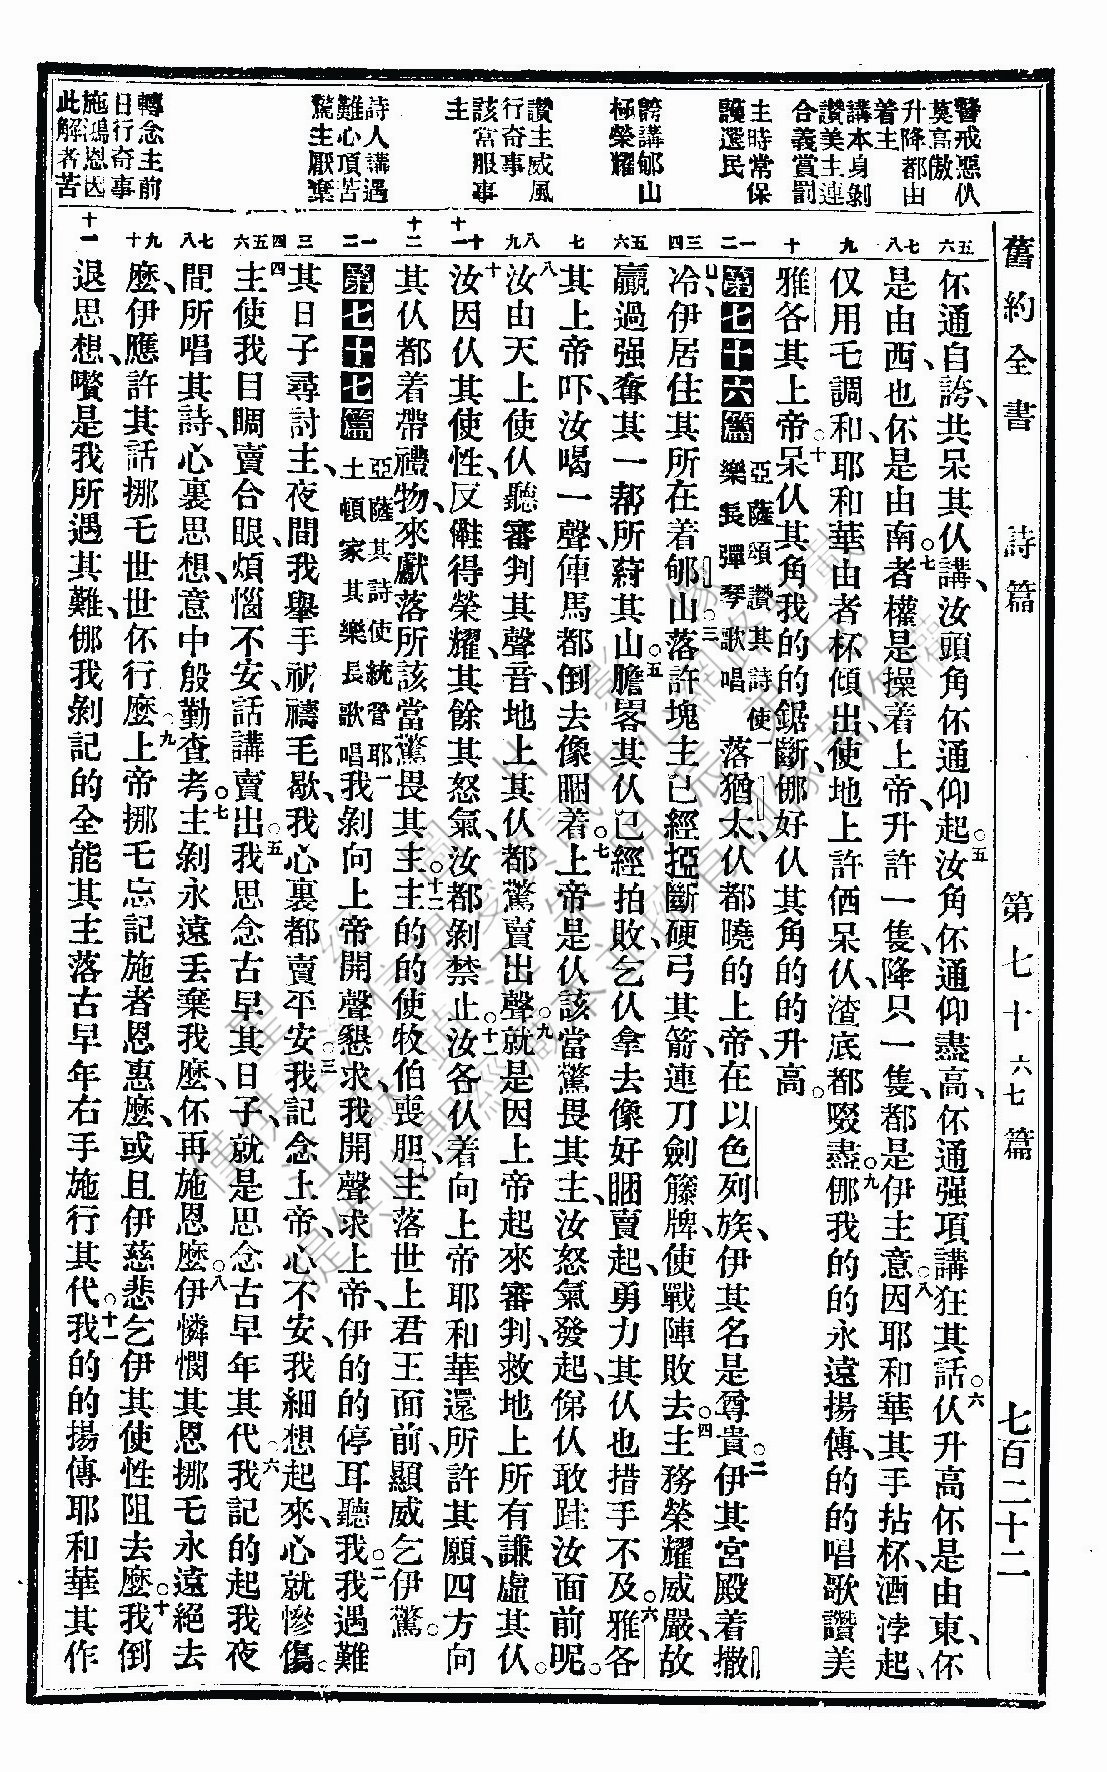 舊約全書　詩篇　第七十六七篇　七百二十二
警戒惡仈
莫高傲
升降都由
着主
講本身剝
讚美主連
合義賞罰
主時常保
護選民
誇講郇山
極榮耀
讚主威風
行奇事
該當服事
主
詩人講遇
難心頂苦
驚主厭棄
轉念主前
日行奇事
施鴻恩因
此解者苦
伓通自誇、共呆其仈講、汝頭角伓通仰起○五汝角伓通仰盡高、伓通强項講狂其話○六仈升高伓是由東、伓
是由西也伓是由南○七者權是操着上帝、升許一隻、降只一隻、都是伊主意○八因耶和華其手拈杯、酒浡起、
仅用乇調和、耶和華由者杯傾出、使地上許仸呆仈、渣底都啜盡○九㑚我的的永遠揚傳、的的唱歌讚美
雅各其上帝○十呆仈其角我的的鋸斷、㑚好仈其角的的升高○
第七十六篇　亞薩頌讚其詩使樂長彈琴歌唱　一落猶太、仈都曉的上帝、在以色列族、伊其名是尊貴○二伊其宮殿着撒
冷、伊居住其所在着郇山○三落許塊主已經掗斷硬弓其箭、連刀劍籐牌、使戰陣敗去○四主務榮耀威嚴、故
贏過强奪其一帮所䓁其山○五膽畧其仈已經拍敗、乞仈拿去像好睏賣起、勇力其仈也措手不及○六雅各
其上帝吓、汝喝一聲俥馬都倒去像睏着○七上帝是仈該當驚畏其主、汝怒氣發起、俤仈敢跬汝面前呢○
八汝由天上使仈聽審判其聲音、地上其仈都驚賣出聲○九就是因上帝起來審判、救地上所有謙虛其仈○
十汝因仈其使性、反㒢得榮耀、其餘其怒氣、汝都剝禁止○十一汝各仈着向上帝耶和華還所許其願、四方向
其仈都着帶禮物、來獻落所該當驚畏其主○十二主的的使牧伯喪胆、主落世上君王面前、顯威乞伊驚○
第七十七篇　亞薩其詩使統管耶土頓家其樂長歌唱　一我剝向上帝開聲懇求、我開聲求上帝、伊的的停耳聽我○二我遇難
其日子尋討主、夜間我舉手祈禱毛歇、我心裏都賣平安○三我記念上帝、心不安、我細想起來、心就慘傷○
四主使我目瞷賣合眼、煩惱不安、話講賣出○五我思念古早其日子、就是思念古早年其代○六我記的起我夜
間所唱其詩、心裏思想、意中殷勤查考○七主剝永遠丟棄我麼、伓再施恩麼○八伊憐憫其恩挪乇永遠絕去
麼、伊應許其話挪乇世世伓行麼○九上帝挪乇忘記施者恩惠麼、或且伊慈悲乞伊其使性阻去麼○十我倒
退思想、嚽是我所遇其難、㑚我剝記的全能其主落古早年右手施行其代○十一我的的揚傳耶和華其作